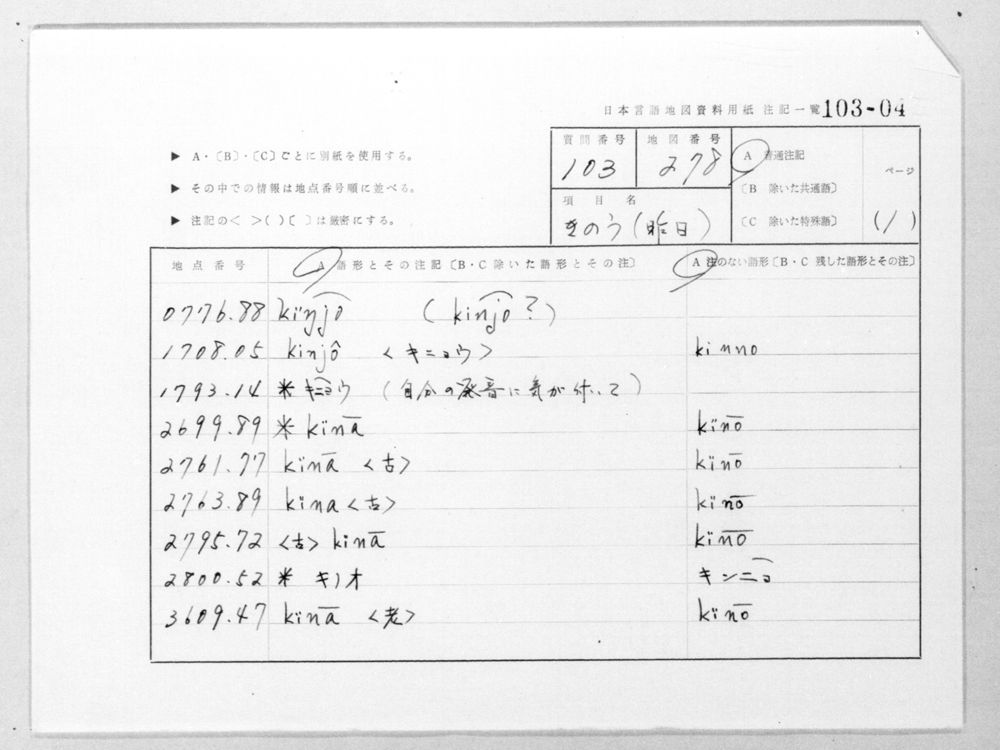 日本言語地図資料用紙 注記一覧 103-04
▶ A・〔B〕・〔C〕ごとに別紙を使用する。
▶ その中での情報は地点番号順に並べる。
▶ 注記の< >( )〔 〕は厳密にする。
質問番号 地図番号 A 普通注記 ページ
103 278 〔B 除いた共通語〕
項目名 〔C 除いた特殊語〕
きのう(昨日) (1)
地点番号 A 語形とその注記〔B・C 除いた語形とその注〕 A 注のない語形〔B・C 残した語形とその注〕
0776.88 (kïnjo?)
1708.05 kinjô <キニョウ> kinno
1793.14 *キニョウ (自分の発音に気が付いて)
2699.89 * kïnā kïnō
2761.77 kïnā <古> kïnō
2763.89 kïna <古> kïnō
2795.72 <古> kïnā kïnō
2800.52 * キノオ キンニョ
3609.47 kïnā <老> kïnō